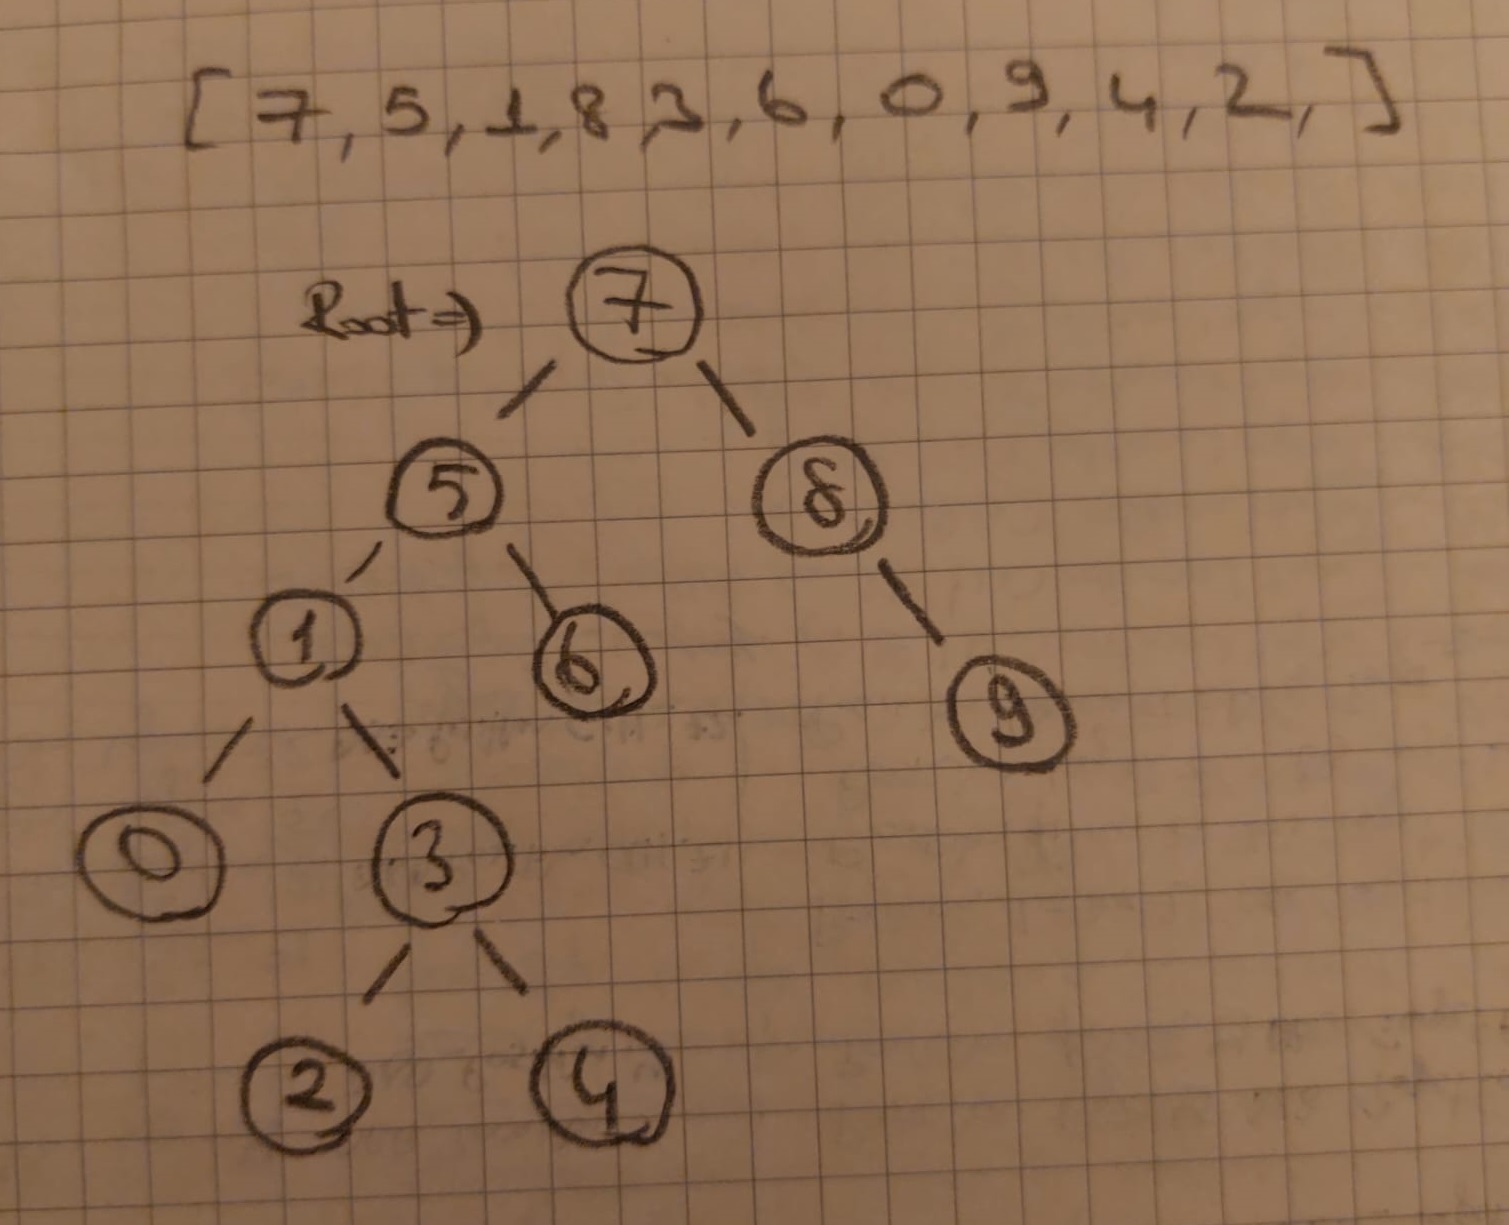 [7, 5, 1, 8, 3, 6, 0, 9, 4, 2, ]
Root => 7
5 8
1 6 9
0 3
2 4